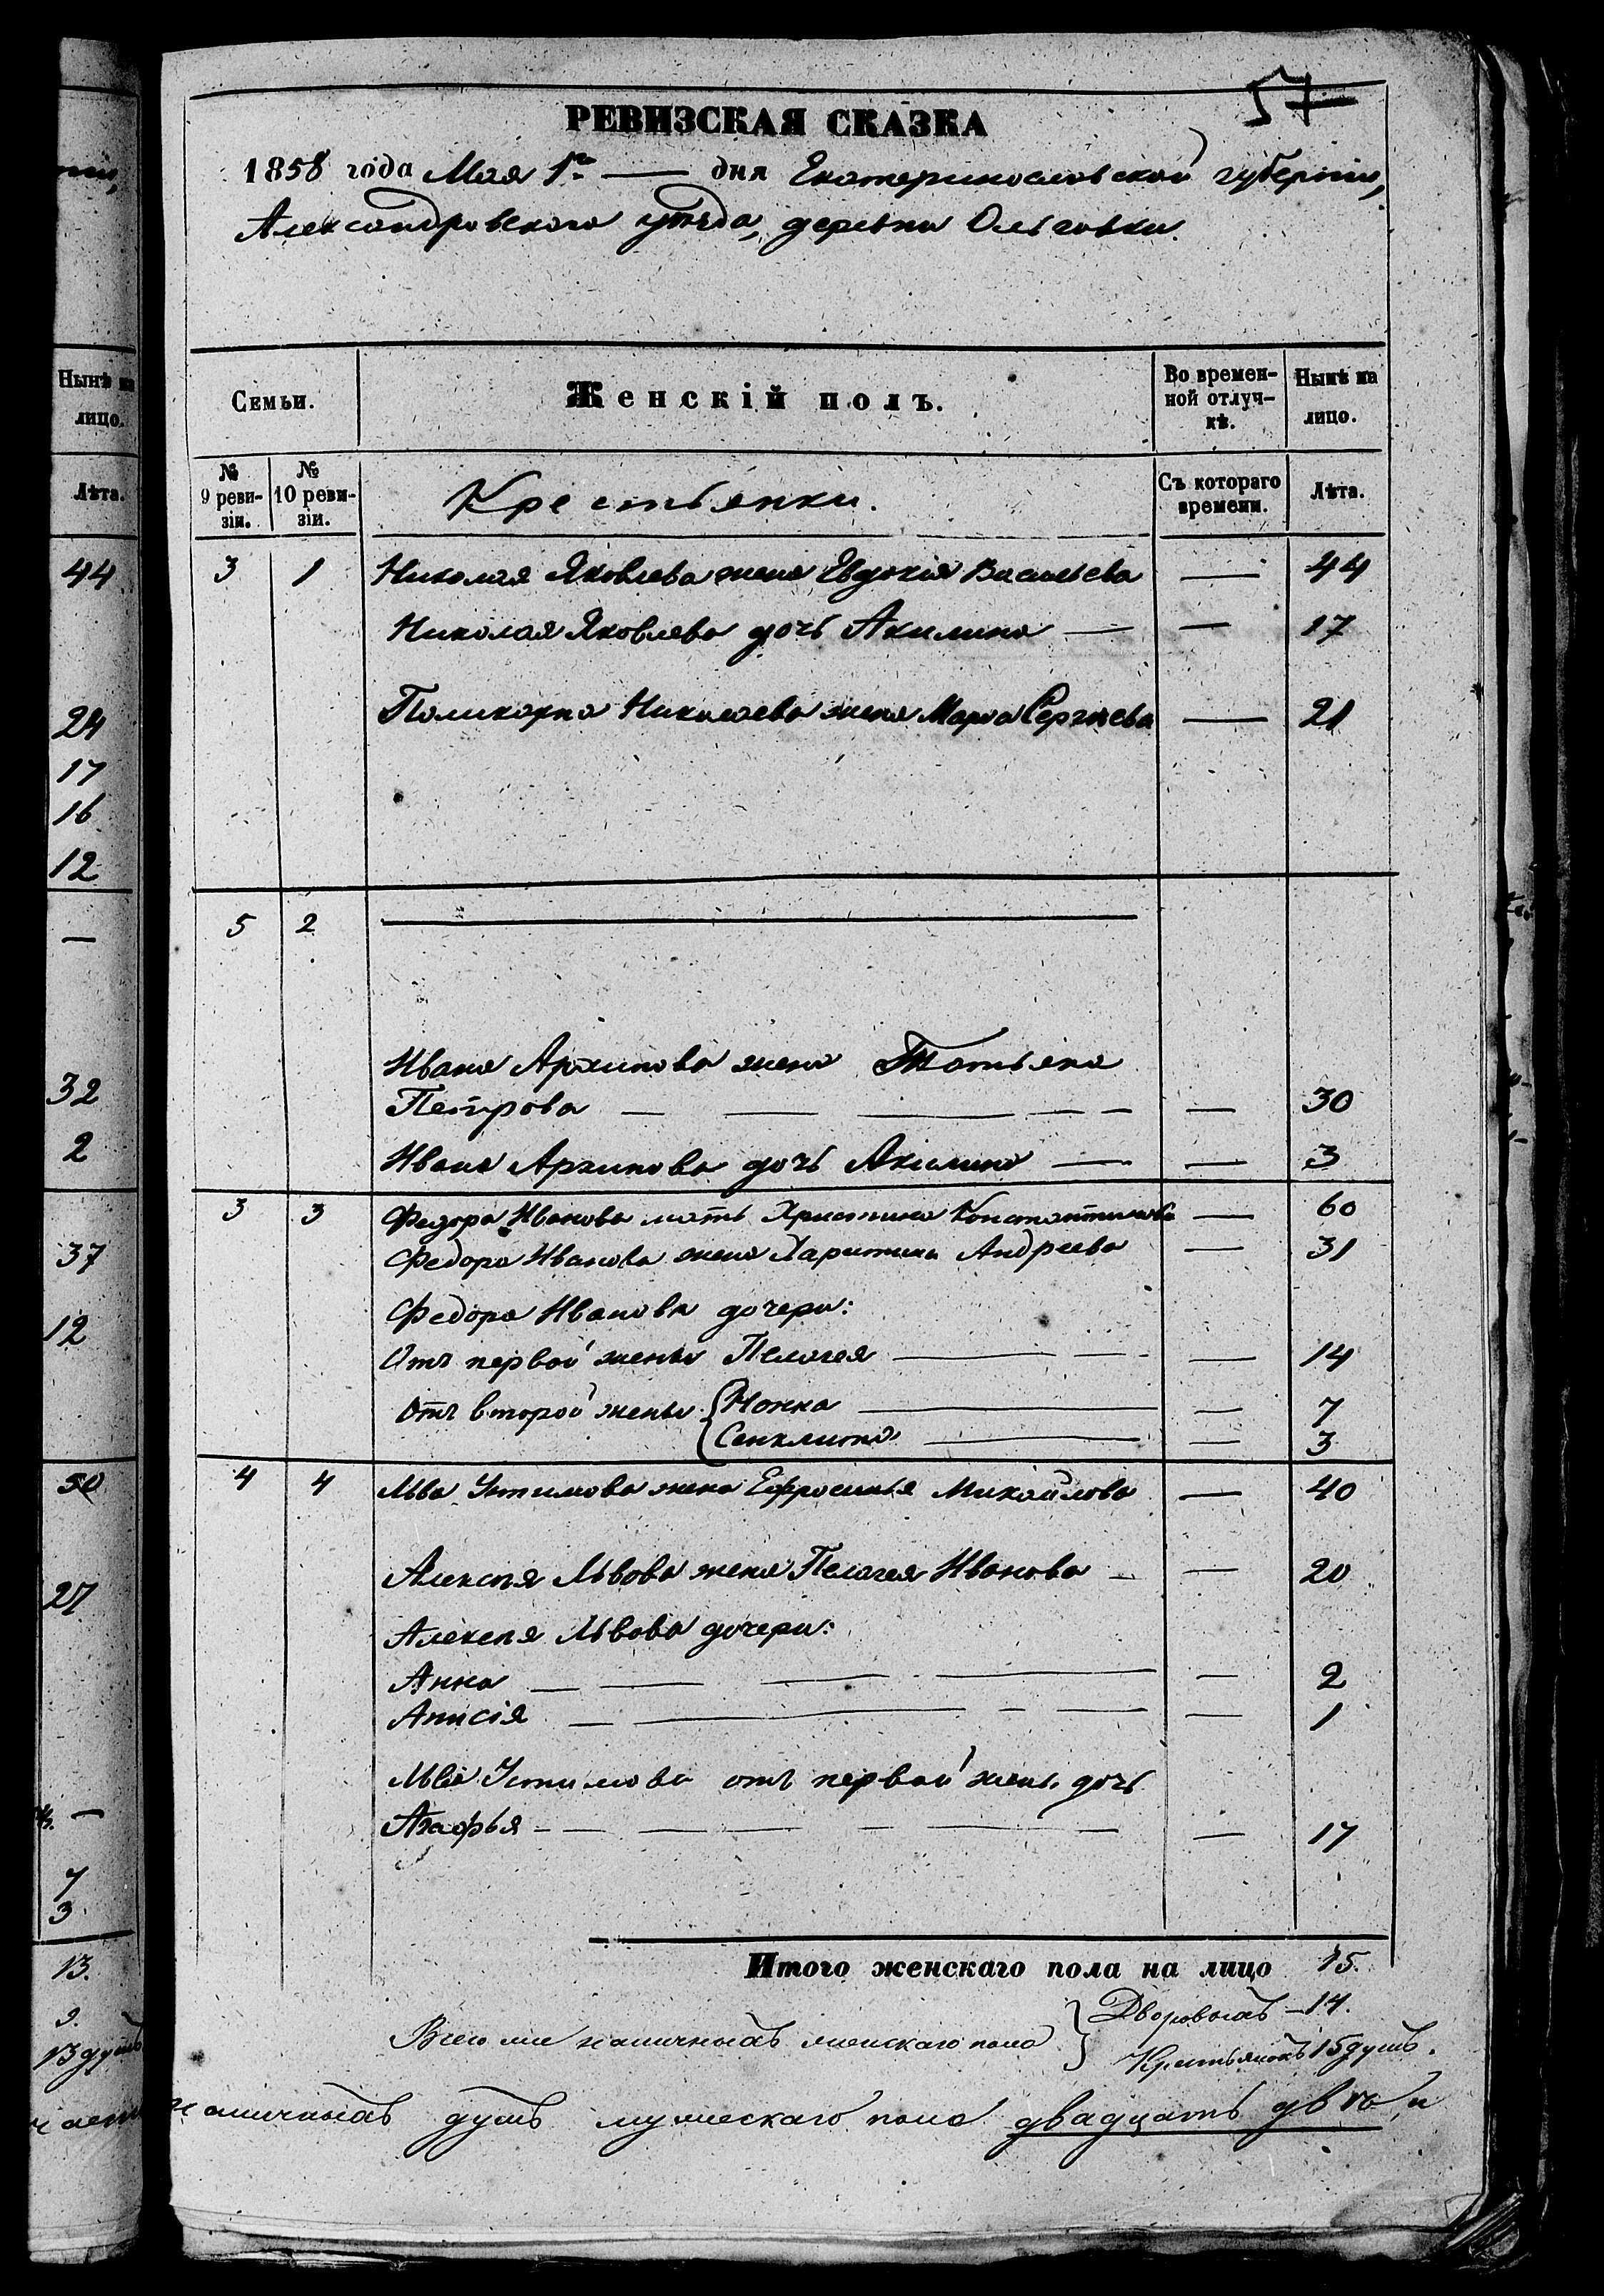 57
РЕВИЗСКАЯ СКАЗКА
1858 года Мая 1го — дня Екатеринославской губернии,
Александровского уѣзда, деревни Ольговки.
Нынѣ на
лицо.
Лѣта.
44
24
17
16
12
—
32
2
37
12
50
27
—
7
3
13.
9.
13 душъ
Семьи.
Женскій полъ.
Во времен-
ной отлуч-
кѣ.
Нынѣ на
лицо.
№
9 реви-
зіи.
№
10 реви-
зіи.
Крестьянки.
Съ котораго
времени.
Лѣта.
3 1 Николая Яковлева жена Евдокія Васильева — 44
Николая Яковлева дочь Акилина — — 17
Поликарпа Николаева жена Марѳа Сергѣева — 21
5 2 —
Ивана Архипова жена Татьяна
Петрова — — — — — — 30
Ивана Архипова дочь Акилина — — 3
3 3 Федора Иванова мать Христина Константинова — 60
Федора Иванова жена Харитина Андреева — 31
Федора Иванова дочери:
Отъ первой жены Пелагея — — — — 14
Отъ второй жены { Нонна — — 7
Сенклита — — 3
4 4 Льва Устимова жена Ефросинья Михайлова — 40
Алексѣя Львова жена Пелагея Иванова — — 20
Алексѣя Львова дочери:
Анна — — — — — 2
Анисія — — — — — 1
Льва Устимова отъ первой жены дочь
Агафья — — — — — — 17
Итого женскаго пола на лицо 15.
Всего же наличныхъ женскаго пола } Дворовыхъ — 14.
Крестьянокъ 15 душъ.
наличныхъ душъ мужескаго пола двадцать двѣ, и